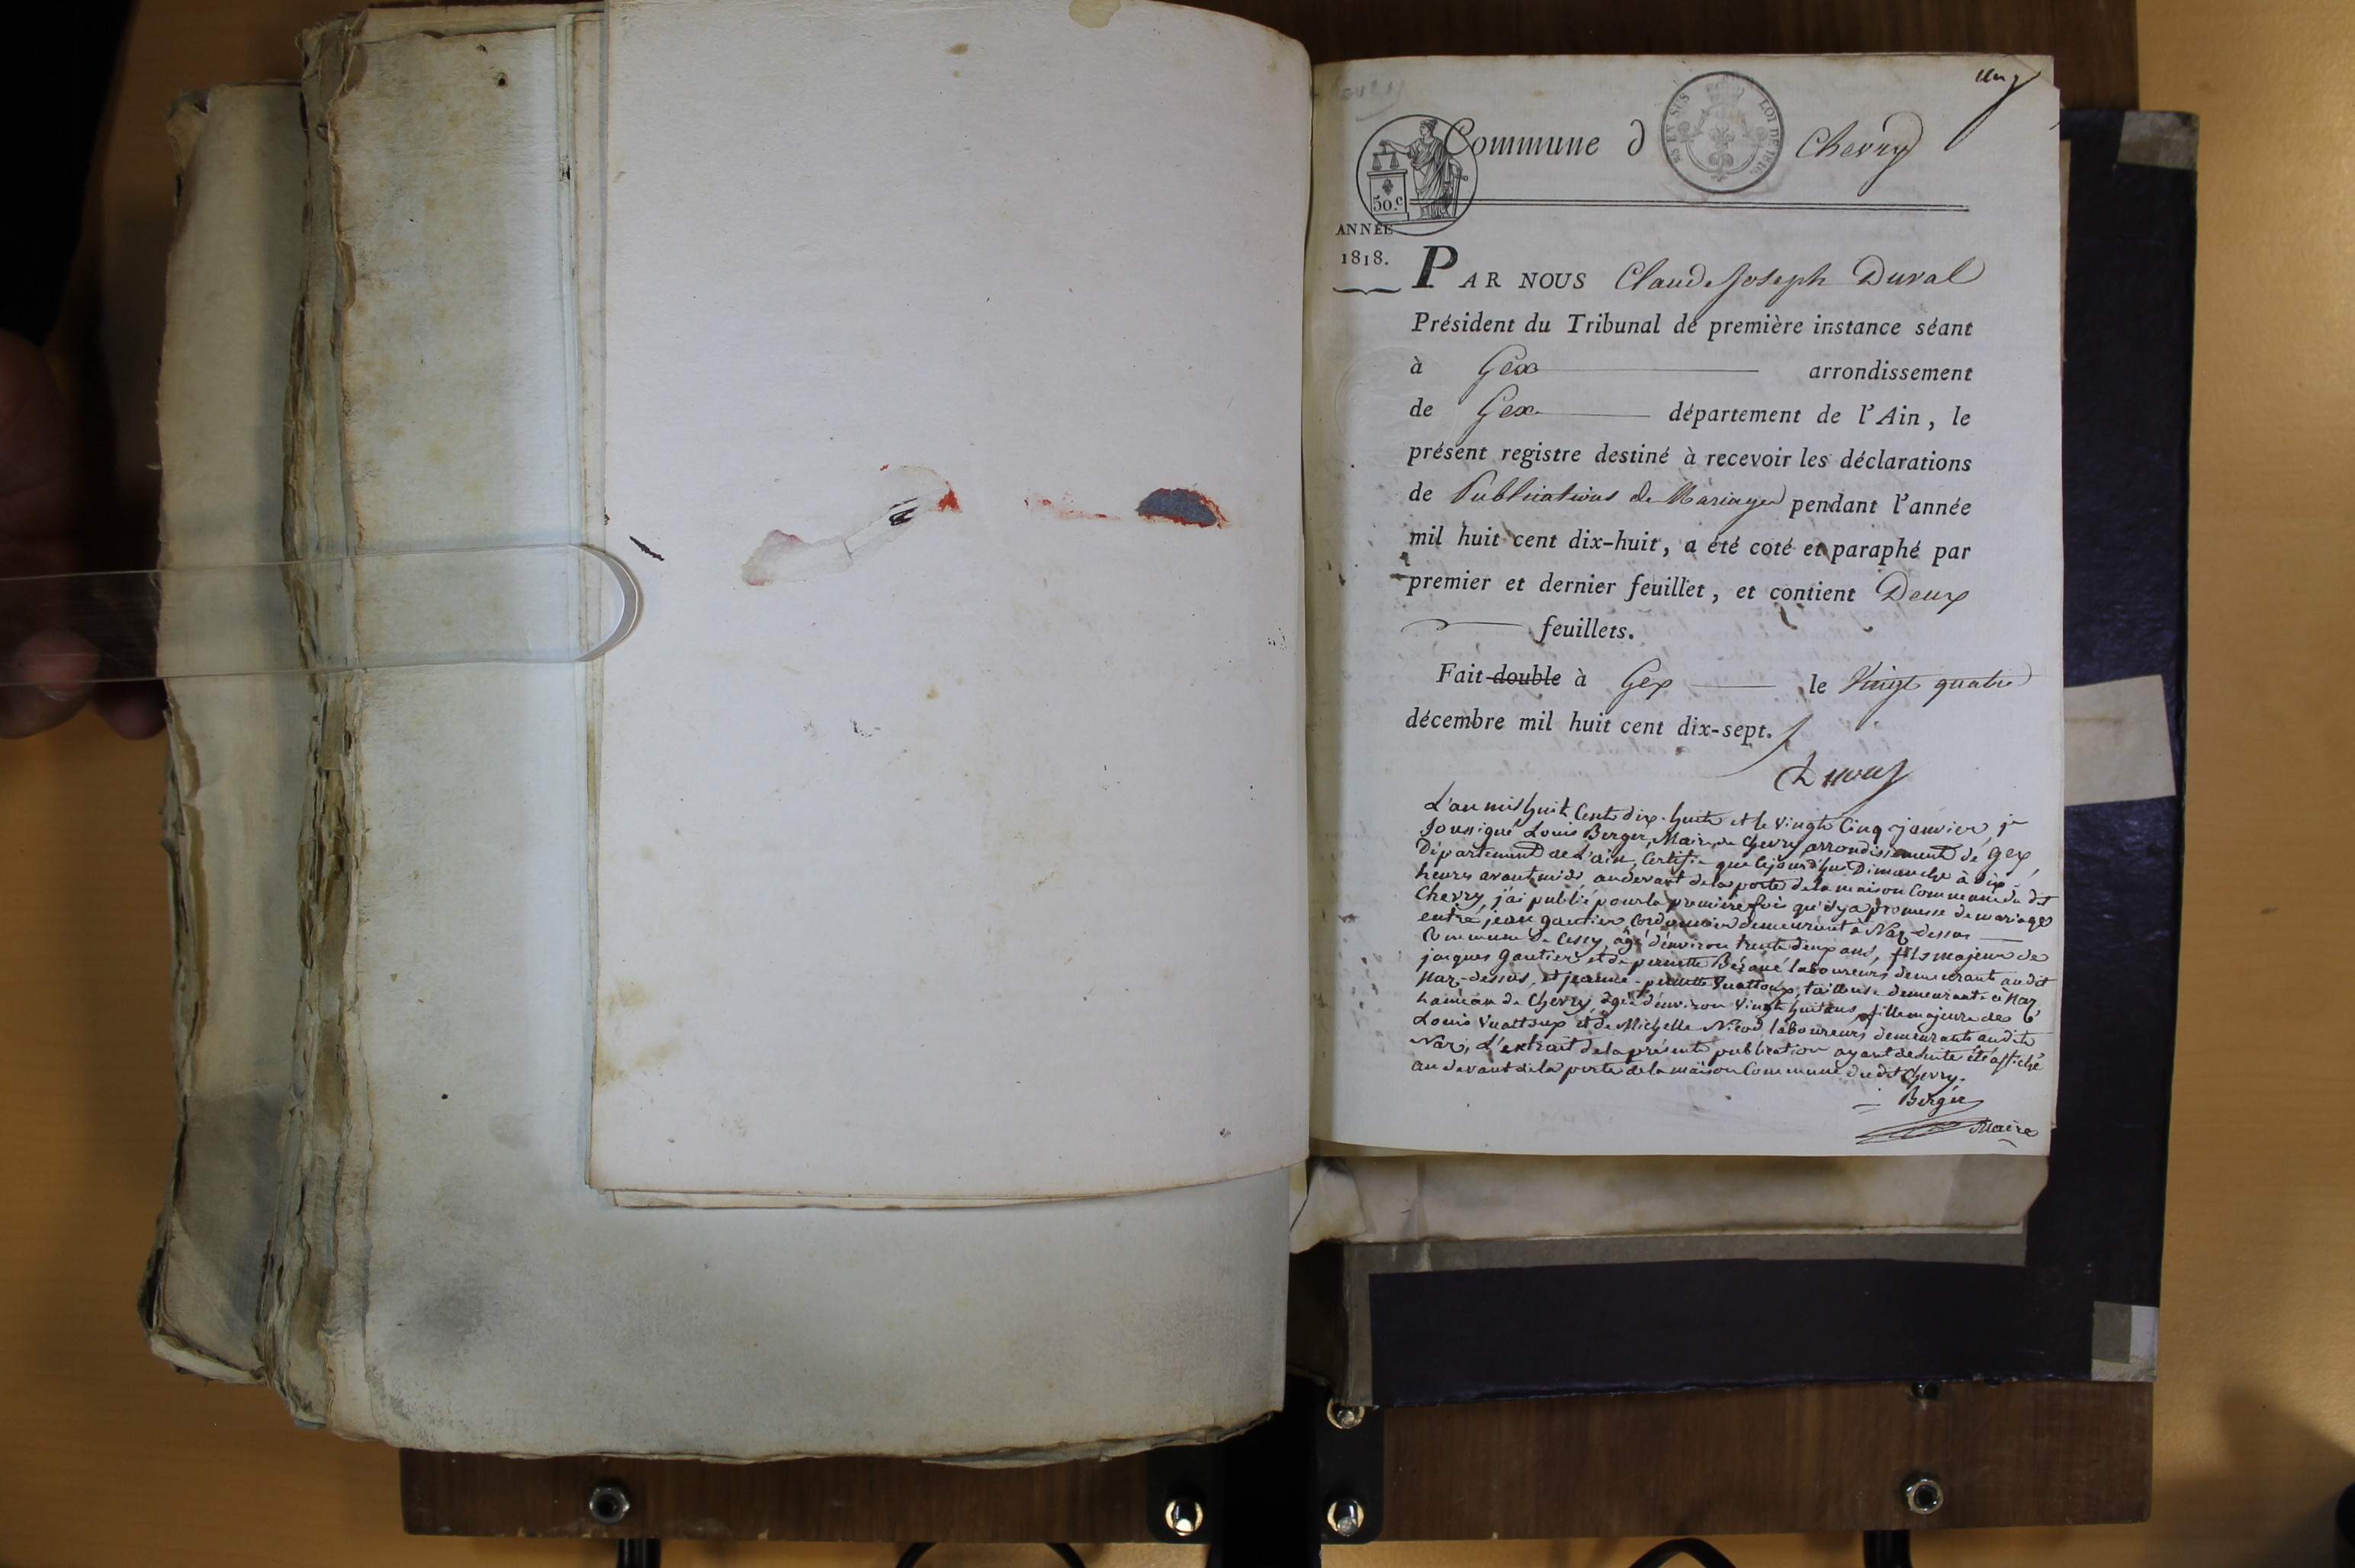 un
Commune d Chevry
EN SUS
LOI DE 1816.
50.c
ANNÉE
1818.
PAR NOUS Claude Joseph Duval
Président du Tribunal de première instance séant
à Gex arrondissement
de Gex département de l'Ain, le
présent registre destiné à recevoir les déclarations
de Publications de Mariages pendant l'année
mil huit cent dix-huit, a été coté et paraphé par
premier et dernier feuillet, et contient Deux
feuillets.
Fait double à Gex le Vingt quatre
décembre mil huit cent dix-sept.
Duval
L'an mil huit Cent dix-huit et le vingt Cinq janvier, je
soussigné Louis Berger, Maire de Chevry arrondissement de Gex,
Département de L'ain, Certifie que Cejourd'hui Dimanche à dix
heures avant midi audevant de la porte de la maison Commune du dit
Chevry, j'ai publié pour la première fois qu'il y a promesse de mariage
entre jean gautier Cordonnier demeurant à Naz-dessus
Commune De Cessy, âgé d'environ trente deux ans, fils majeur de
jacques Gautier et de pernette laboureurs demeurants au dit
Naz-dessus, et jeanne-pernette tailleuse demeurante à Naz
hameau de Chevry, âgée d'environ vingt huit ans, fille majeure de
Louis et de Michelle Nicod laboureurs demeurants au dit
Naz, L'extrait de la présente publication ayant de suite été affiché
au devant de la porte de la maison Commune du dit Chevry.
Berger
Maire